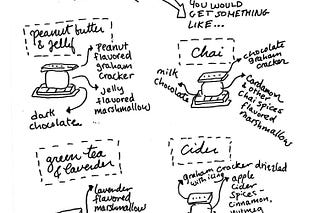 YOU WOULD
GET SOMETHING
LIKE...
peanut butter
& jelly
Peanut
flavored
graham
cracker
jelly
flavored
marshmallow
dark
chocolate
Chai
chocolate
graham
cracker
milk
chocolate
Cardamom
& other
chai spices
flavored
marshmallow
green tea
& lavender
lavender
flavored
marshmallow
Cider
graham cracker drizzled
with icing
apple
cider
spices
cinnamon,
nutmeg